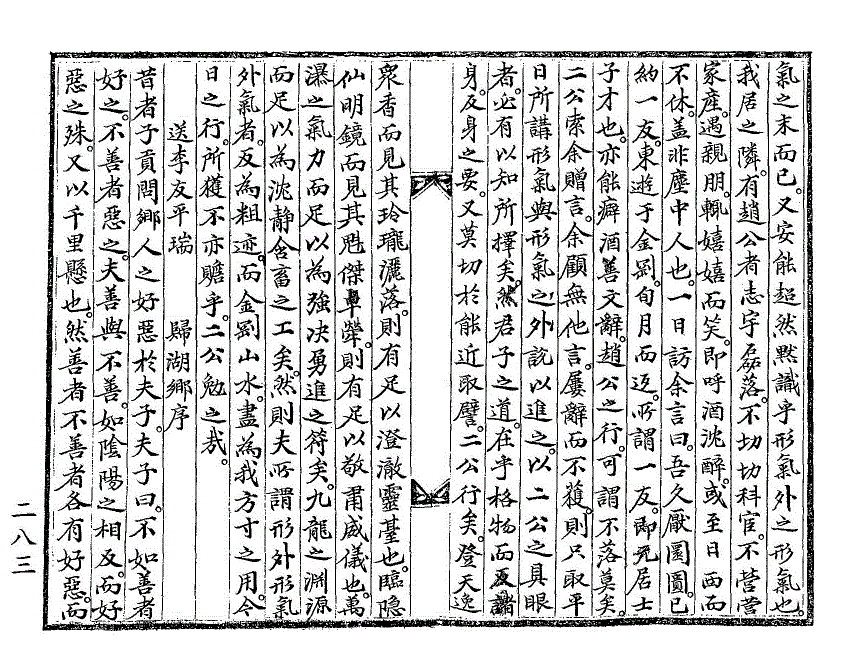 氣之末而已。又安能超然默識乎形氣外之形氣也。
我居之隣。有趙公者志宇磊落。不切切科宦。不營營
家產。遇親朋。輒嬉嬉而笑。即呼酒沈醉。或至日西而
不休。盖非塵中人也。一日訪余言曰。吾久厭闤闠。已
約一友。東遊于金剛。旬月而返。所謂一友。即兄居士
子才也。亦能癖酒善文辭。趙公之行。可謂不落莫矣。
二公索余贈言。余顧無他言。屢辭而不獲。則只取平
日所講形氣與形氣之外說以進之。以二公之具眼
者。必有以知所擇矣。然君子之道。在乎格物而反諸
身。反身之要。又莫切於能近取譬。二公行矣。登天逸
衆香而見其玲瓏灑落。則有足以澄澈靈臺也。臨隱
仙明鏡而見其魁傑卓犖。則有足以敬肅威儀也。萬
瀑之氣力而足以為強決勇進之符矣。九龍之淵源
而足以為沈靜含畜之工矣。然則夫所謂形外形氣
外氣者。反為粗迹。而金剛山水。盡為我方寸之用。今
日之行。所獲不亦贍乎。二公勉之哉。
送李友平瑞　歸湖鄉序
昔者子貢問鄉人之好惡於夫子。夫子曰。不如善者
好之。不善者惡之。夫善與不善。如陰陽之相反。而好
惡之殊。又以千里懸也。然善者不善者各有好惡。而
二八三